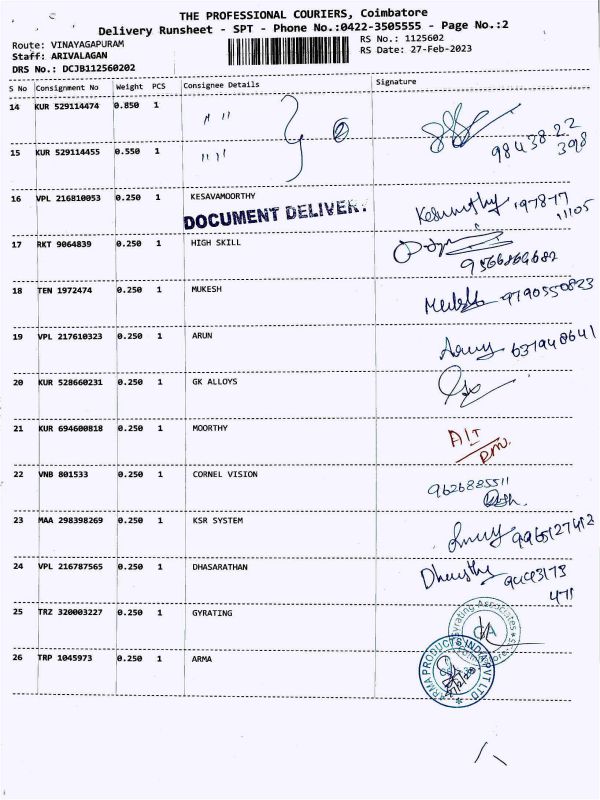 THE PROFESSIONAL COURIERS, Coimbatore
Delivery Runsheet - SPT - Phone No.:0422-3505555 - Page No.:2
Route: VINAYAGAPURAM
Staff: ARIVALAGAN
DRS No.: DCJB112560202
RS No.: 1125602
RS Date: 27-Feb-2023
S No Consignment No Weight PCS Consignee Details Signature
14 KUR 529114474 0.850 1 " "
15 KUR 529114455 0.550 1 " "
98438 22
398
16 VPL 216810053 0.250 1 KESAVAMOORTHY
DOCUMENT DELIVERY
17 RKT 9064839 0.250 1 HIGH SKILL
18 TEN 1972474 0.250 1 MUKESH 9790550823
19 VPL 217610323 0.250 1 ARUN
20 KUR 528660231 0.250 1 GK ALLOYS
21 KUR 694600818 0.250 1 MOORTHY
22 VNB 801533 0.250 1 CORNEL VISION 9626885511
23 MAA 298398269 0.250 1 KSR SYSTEM 9965127412
24 VPL 216787565 0.250 1 DHASARATHAN
471
25 TRZ 320003227 0.250 1 GYRATING
Gyrating Associates
CA
26 TRP 1045973 0.250 1 ARMA
ARMA PRODUCTS INDIA PVT LTD